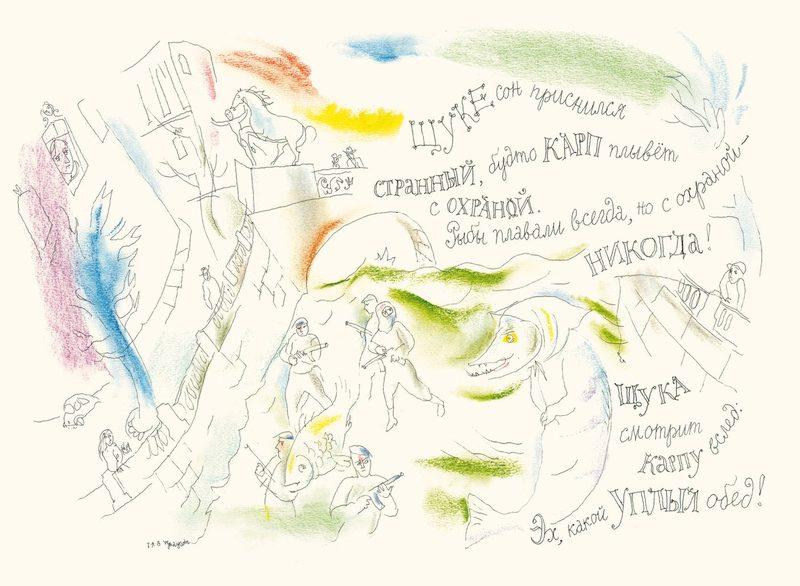 ЩУКЕ сон приснился
СТРАННЫЙ, будто КАРП плывёт
с ОХРАНОЙ.
Рыбы плавали всегда, но с охраной –
НИКОГДА!
ЩУКА
смотрит
КАРПУ вслед:
Эх, какой УПЛЫЛ обед!